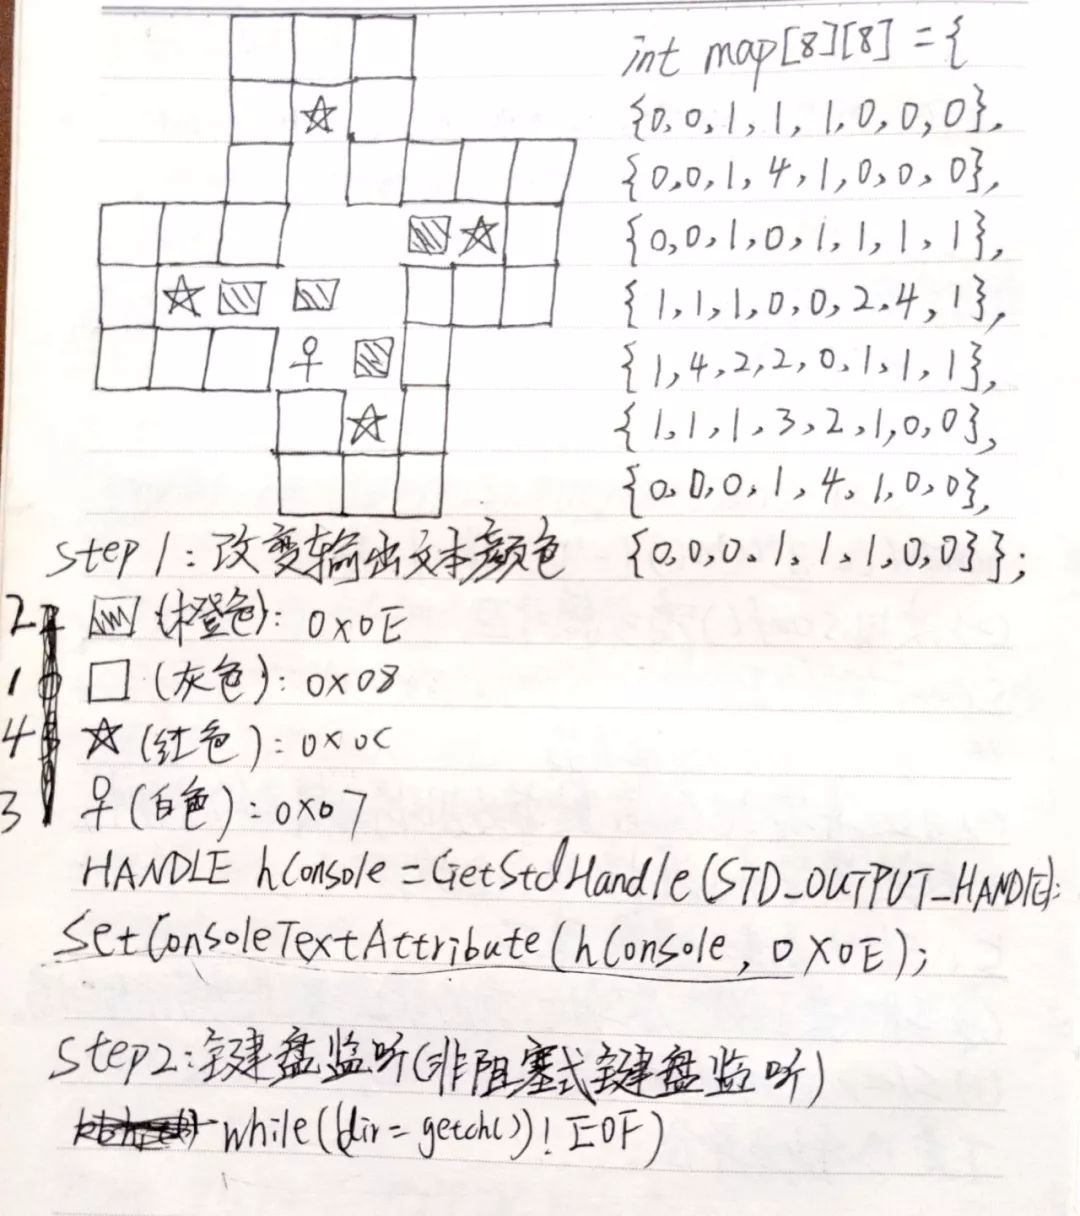 int map[8][8] = {
{0,0,1,1,1,0,0,0},
{0,0,1,4,1,0,0,0},
{0,0,1,0,1,1,1,1},
{1,1,1,0,0,2,4,1},
{1,4,2,2,0,1,1,1},
{1,1,1,3,2,1,0,0},
{0,0,0,1,4,1,0,0},
{0,0,0,1,1,1,0,0}};
step 1: 改变输出文本颜色
2 (橙色): 0x0E
1 (灰色): 0x08
4 (红色): 0x0C
3 (白色): 0x07
HANDLE hConsole = GetStdHandle(STD_OUTPUT_HANDLE);
SetConsoleTextAttribute(hConsole, 0X0E);
step2: 键盘监听(非阻塞式键盘监听)
while((dir = getch())! EOF)